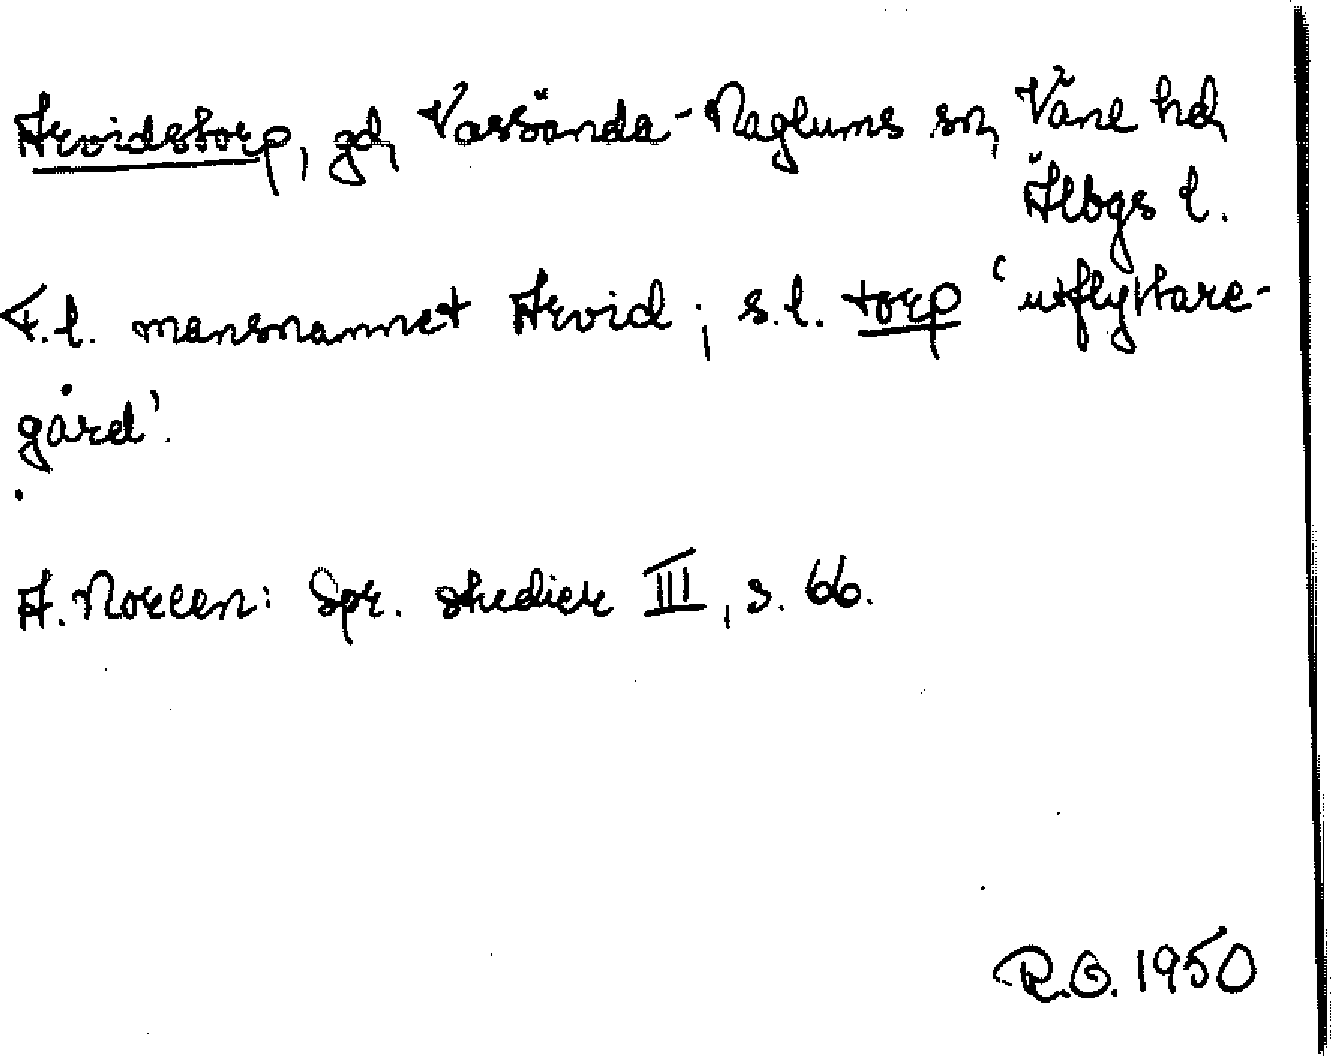 Arvidstorp, gd, Vassända-Naglums sn, Väne hd,
Älbgs l.
F.l. mansnamnet Arvid; s.l. torp 'utflyttare-
gård'.
A. Noreen: Spr. studier III, s. 66.
R.O. 1950